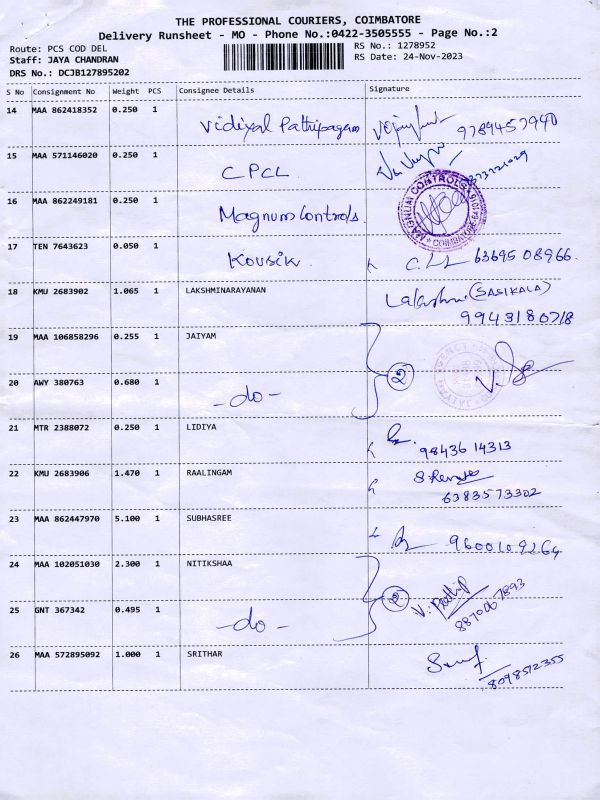 THE PROFESSIONAL COURIERS, COIMBATORE
Delivery Runsheet - MO - Phone No.:0422-3505555 - Page No.:2
Route: PCS COD DEL
RS No.: 1278952
Staff: JAYA CHANDRAN
RS Date: 24-Nov-2023
DRS No.: DCJB127895202
S No Consignment No Weight PCS Consignee Details Signature
14 MAA 862418352 0.250 1 Vidiyal Pathipagam 9789457940
15 MAA 571146020 0.250 1 CPCL
16 MAA 862249181 0.250 1 Magnum Controls MAGNUM CONTROLS COIMBATORE
17 TEN 7643623 0.050 1 Kousik 6369508966
18 KMU 2683902 1.065 1 LAKSHMINARAYANAN (SASIKALA)
9943180718
19 MAA 106858296 0.255 1 JAIYAM 2
20 AWY 380763 0.680 1 - do -
21 MTR 2388072 0.250 1 LIDIYA 9843614313
22 KMU 2683906 1.470 1 RAALINGAM
6383573302
23 MAA 862447970 5.100 1 SUBHASREE 9600109264
24 MAA 102051030 2.300 1 NITIKSHAA 2
25 GNT 367342 0.495 1 - do - 8870067893
26 MAA 572895092 1.000 1 SRITHAR 8098572355